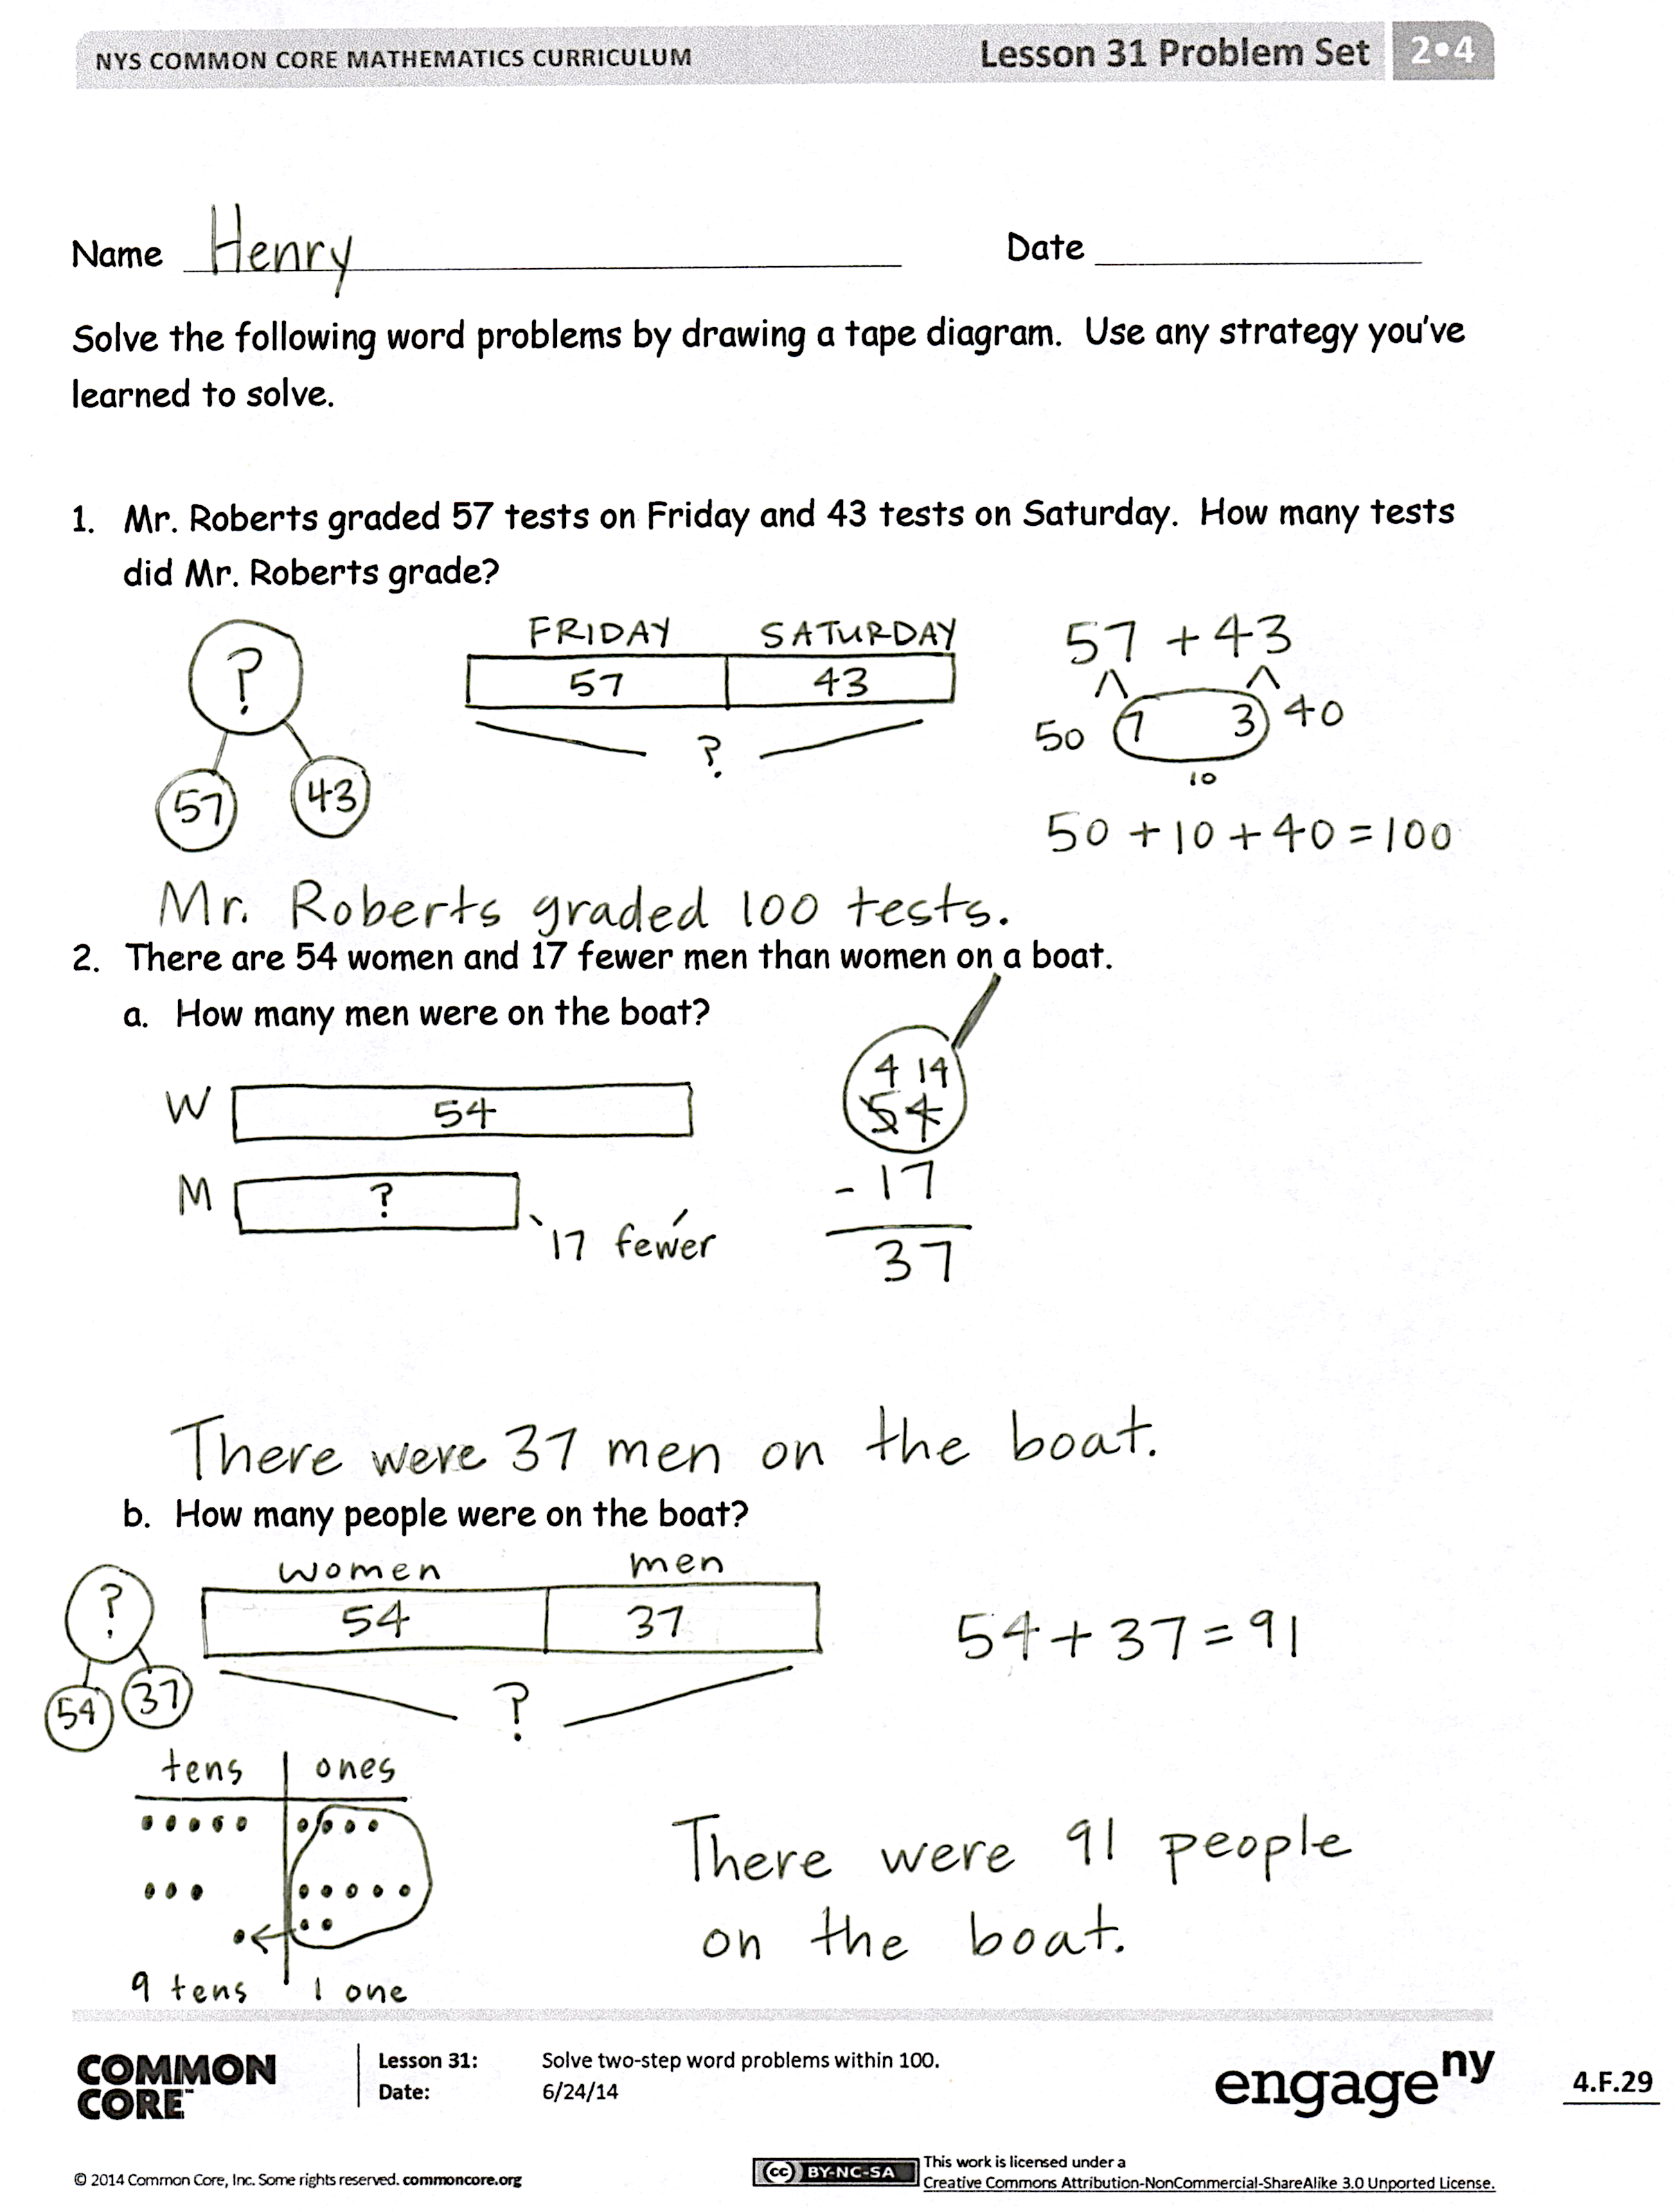 NYS COMMON CORE MATHEMATICS CURRICULUM Lesson 31 Problem Set 2•4
Name Henry Date
Solve the following word problems by drawing a tape diagram. Use any strategy you've
learned to solve.
1. Mr. Roberts graded 57 tests on Friday and 43 tests on Saturday. How many tests
did Mr. Roberts grade?
?
57 43
FRIDAY SATURDAY
57 43
?
57 + 43
50 7 3 40
10
50 + 10 + 40 = 100
Mr. Roberts graded 100 tests.
2. There are 54 women and 17 fewer men than women on a boat.
a. How many men were on the boat?
W 54
M ?
17 fewer
4 14
54
- 17
37
There were 37 men on the boat.
b. How many people were on the boat?
?
54 37
women men
54 37
?
54 + 37 = 91
tens ones
9 tens 1 one
There were 91 people
on the boat.
COMMON
CORE™
Lesson 31: Solve two-step word problems within 100.
Date: 6/24/14
engageny
4.F.29
© 2014 Common Core, Inc. Some rights reserved. commoncore.org
cc BY-NC-SA
This work is licensed under a
Creative Commons Attribution-NonCommercial-ShareAlike 3.0 Unported License.